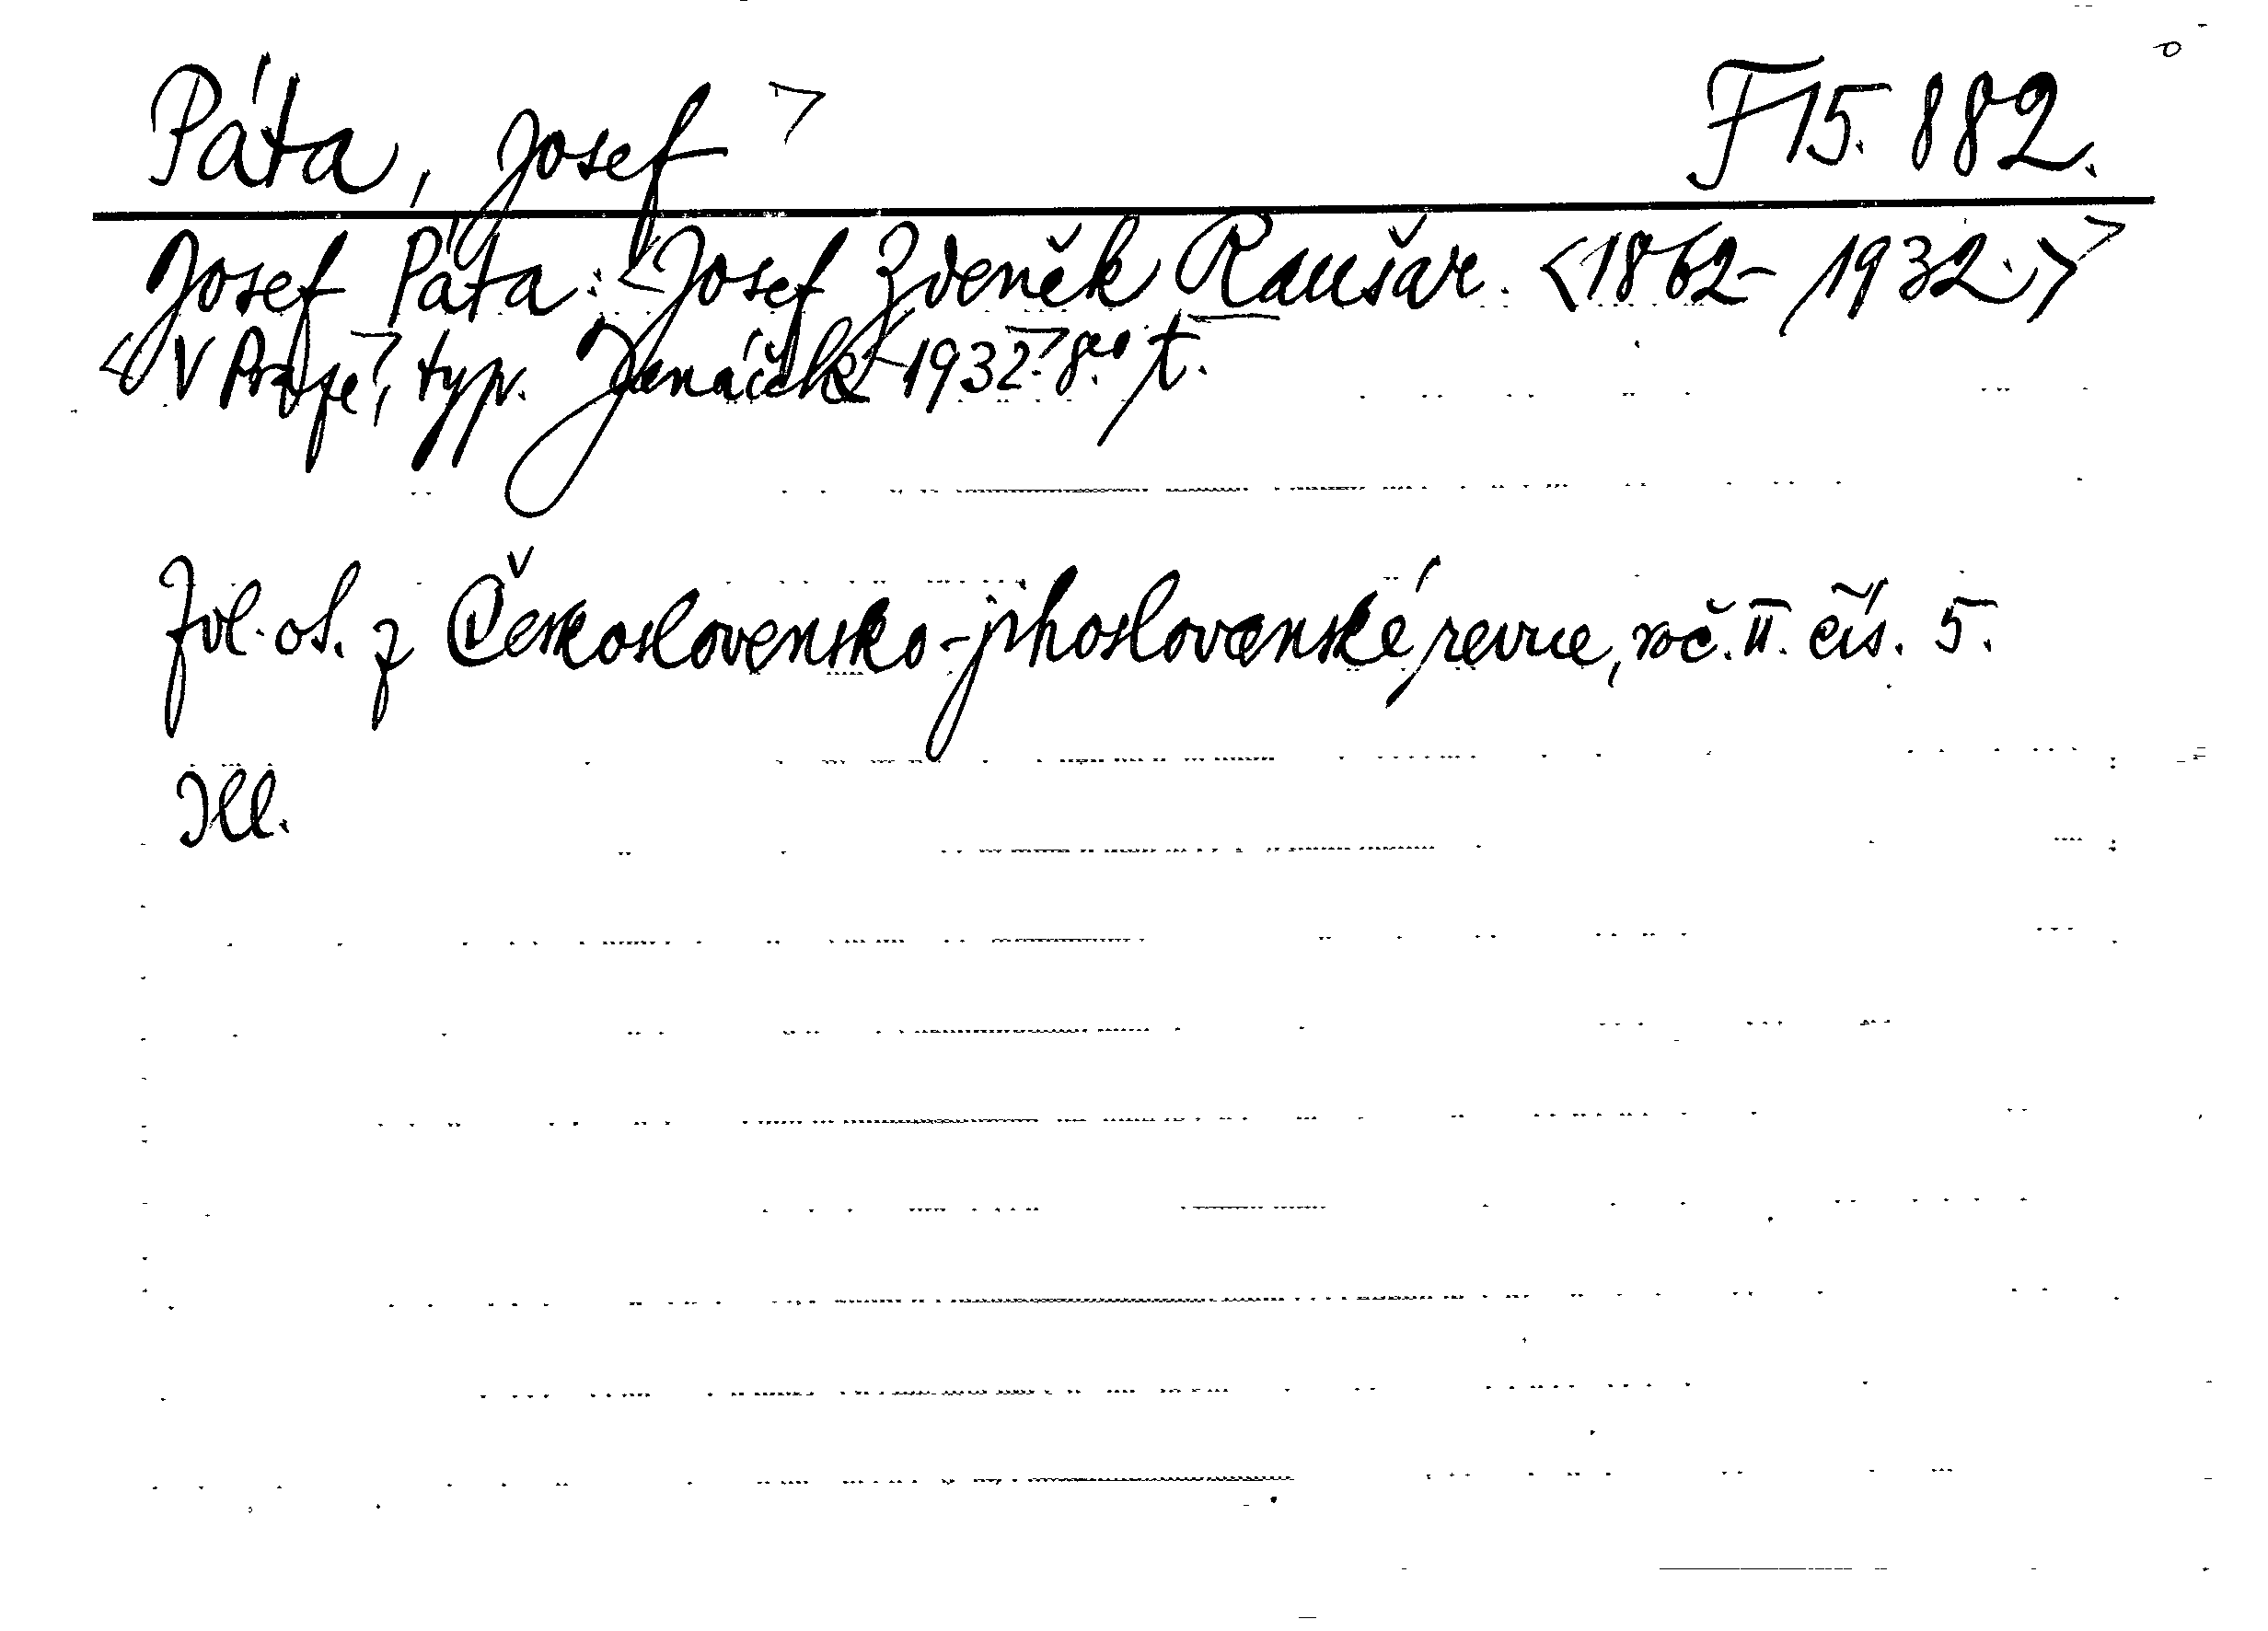 Páta, Josef F 15.882.
Josef Páta: Josef Zdeněk Raušar. <1862-1932.>
V Praze, typ. Janáček 1932. 8.° t.
Zvl. ot. z Československo-jihoslovanské revue, roč. II. čís. 5.
Ill.